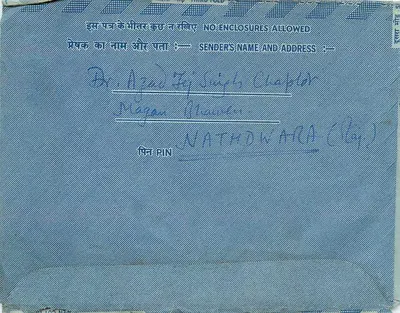 इस पत्र के भीतर कुछ न रखिए NO ENCLOSURES ALLOWED
प्रेषक का नाम और पता :— SENDER'S NAME AND ADDRESS :—
Dr. Azad Tej Singh Chaplot
Magan Bhawan
NATHDWARA (Raj.)
पिन PIN